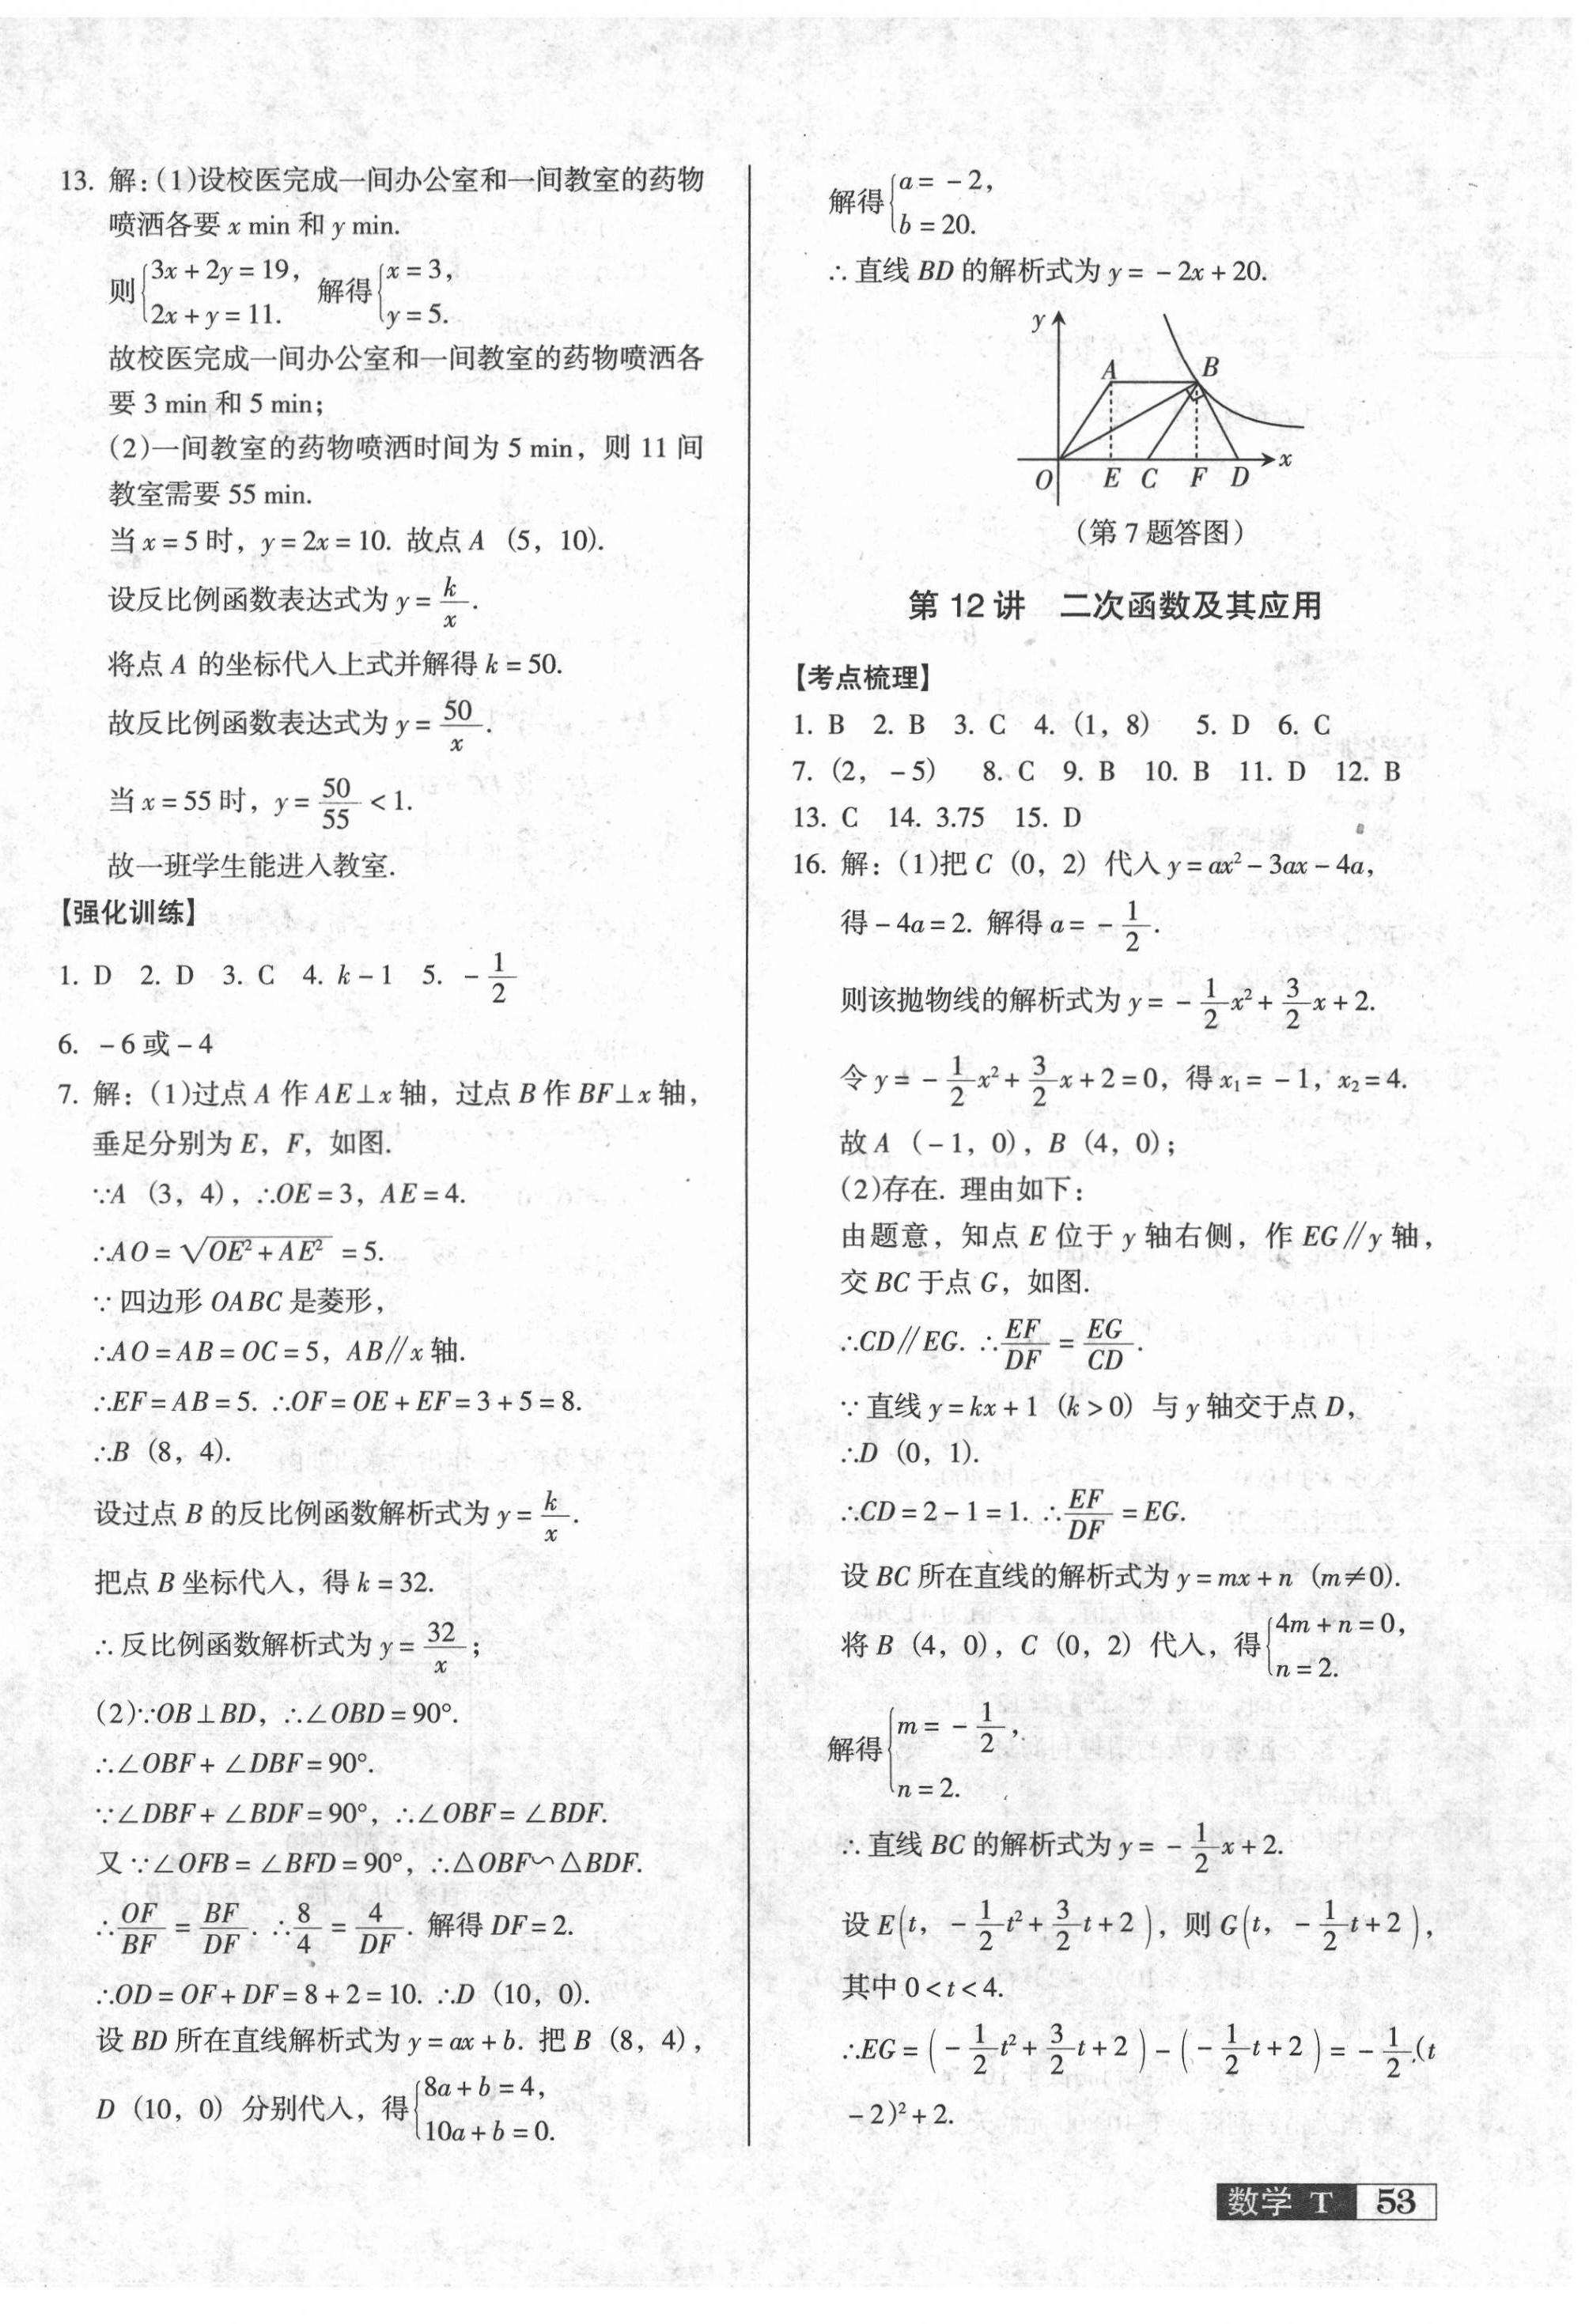 13. 解:(1)设校医完成一间办公室和一间教室的药物
喷洒各要 x min 和 y min.
则{3x+2y=19, 2x+y=11. 解得{x=3, y=5.
故校医完成一间办公室和一间教室的药物喷洒各
要 3 min 和 5 min;
(2)一间教室的药物喷洒时间为 5 min,则 11 间
教室需要 55 min.
当 x=5 时,y=2x=10. 故点 A (5, 10).
设反比例函数表达式为 y=k/x.
将点 A 的坐标代入上式并解得 k=50.
故反比例函数表达式为 y=50/x.
当 x=55 时,y=50/55<1.
故一班学生能进入教室.
【强化训练】
1. D 2. D 3. C 4. k-1 5. -1/2
6. -6 或 -4
7. 解:(1)过点 A 作 AE⊥x 轴,过点 B 作 BF⊥x 轴,
垂足分别为 E, F, 如图.
∵A (3, 4), ∴OE=3, AE=4.
∴AO=√(OE²+AE²)=5.
∵四边形 OABC 是菱形,
∴AO=AB=OC=5, AB∥x 轴.
∴EF=AB=5. ∴OF=OE+EF=3+5=8.
∴B (8, 4).
设过点 B 的反比例函数解析式为 y=k/x.
把点 B 坐标代入,得 k=32.
∴反比例函数解析式为 y=32/x;
(2)∵OB⊥BD, ∴∠OBD=90°.
∴∠OBF+∠DBF=90°.
∵∠DBF+∠BDF=90°, ∴∠OBF=∠BDF.
又∵∠OFB=∠BFD=90°, ∴△OBF∽△BDF.
∴OF/BF=BF/DF. ∴8/4=4/DF. 解得 DF=2.
∴OD=OF+DF=8+2=10. ∴D (10, 0).
设 BD 所在直线解析式为 y=ax+b. 把 B (8, 4),
D (10, 0) 分别代入,得{8a+b=4, 10a+b=0.
解得{a=-2, b=20.
∴直线 BD 的解析式为 y=-2x+20.
y
A B
O E C F D x
(第 7 题答图)
第 12 讲 二次函数及其应用
【考点梳理】
1. B 2. B 3. C 4. (1, 8) 5. D 6. C
7. (2, -5) 8. C 9. B 10. B 11. D 12. B
13. C 14. 3.75 15. D
16. 解:(1)把 C (0, 2) 代入 y=ax²-3ax-4a,
得-4a=2. 解得 a=-1/2.
则该抛物线的解析式为 y=-1/2x²+3/2x+2.
令 y=-1/2x²+3/2x+2=0, 得 x₁=-1, x₂=4.
故 A (-1, 0), B (4, 0);
(2)存在. 理由如下:
由题意,知点 E 位于 y 轴右侧,作 EG∥y 轴,
交 BC 于点 G, 如图.
∴CD∥EG. ∴EF/DF=EG/CD.
∵直线 y=kx+1 (k>0) 与 y 轴交于点 D,
∴D (0, 1).
∴CD=2-1=1. ∴EF/DF=EG.
设 BC 所在直线的解析式为 y=mx+n (m≠0).
将 B (4, 0), C (0, 2) 代入,得{4m+n=0, n=2.
解得{m=-1/2, n=2.
∴直线 BC 的解析式为 y=-1/2x+2.
设 E(t, -1/2t²+3/2t+2), 则 G(t, -1/2t+2),
其中 0<t<4.
∴EG=(-1/2t²+3/2t+2)-(-1/2t+2)=-1/2(t
-2)²+2.
数学 T 53